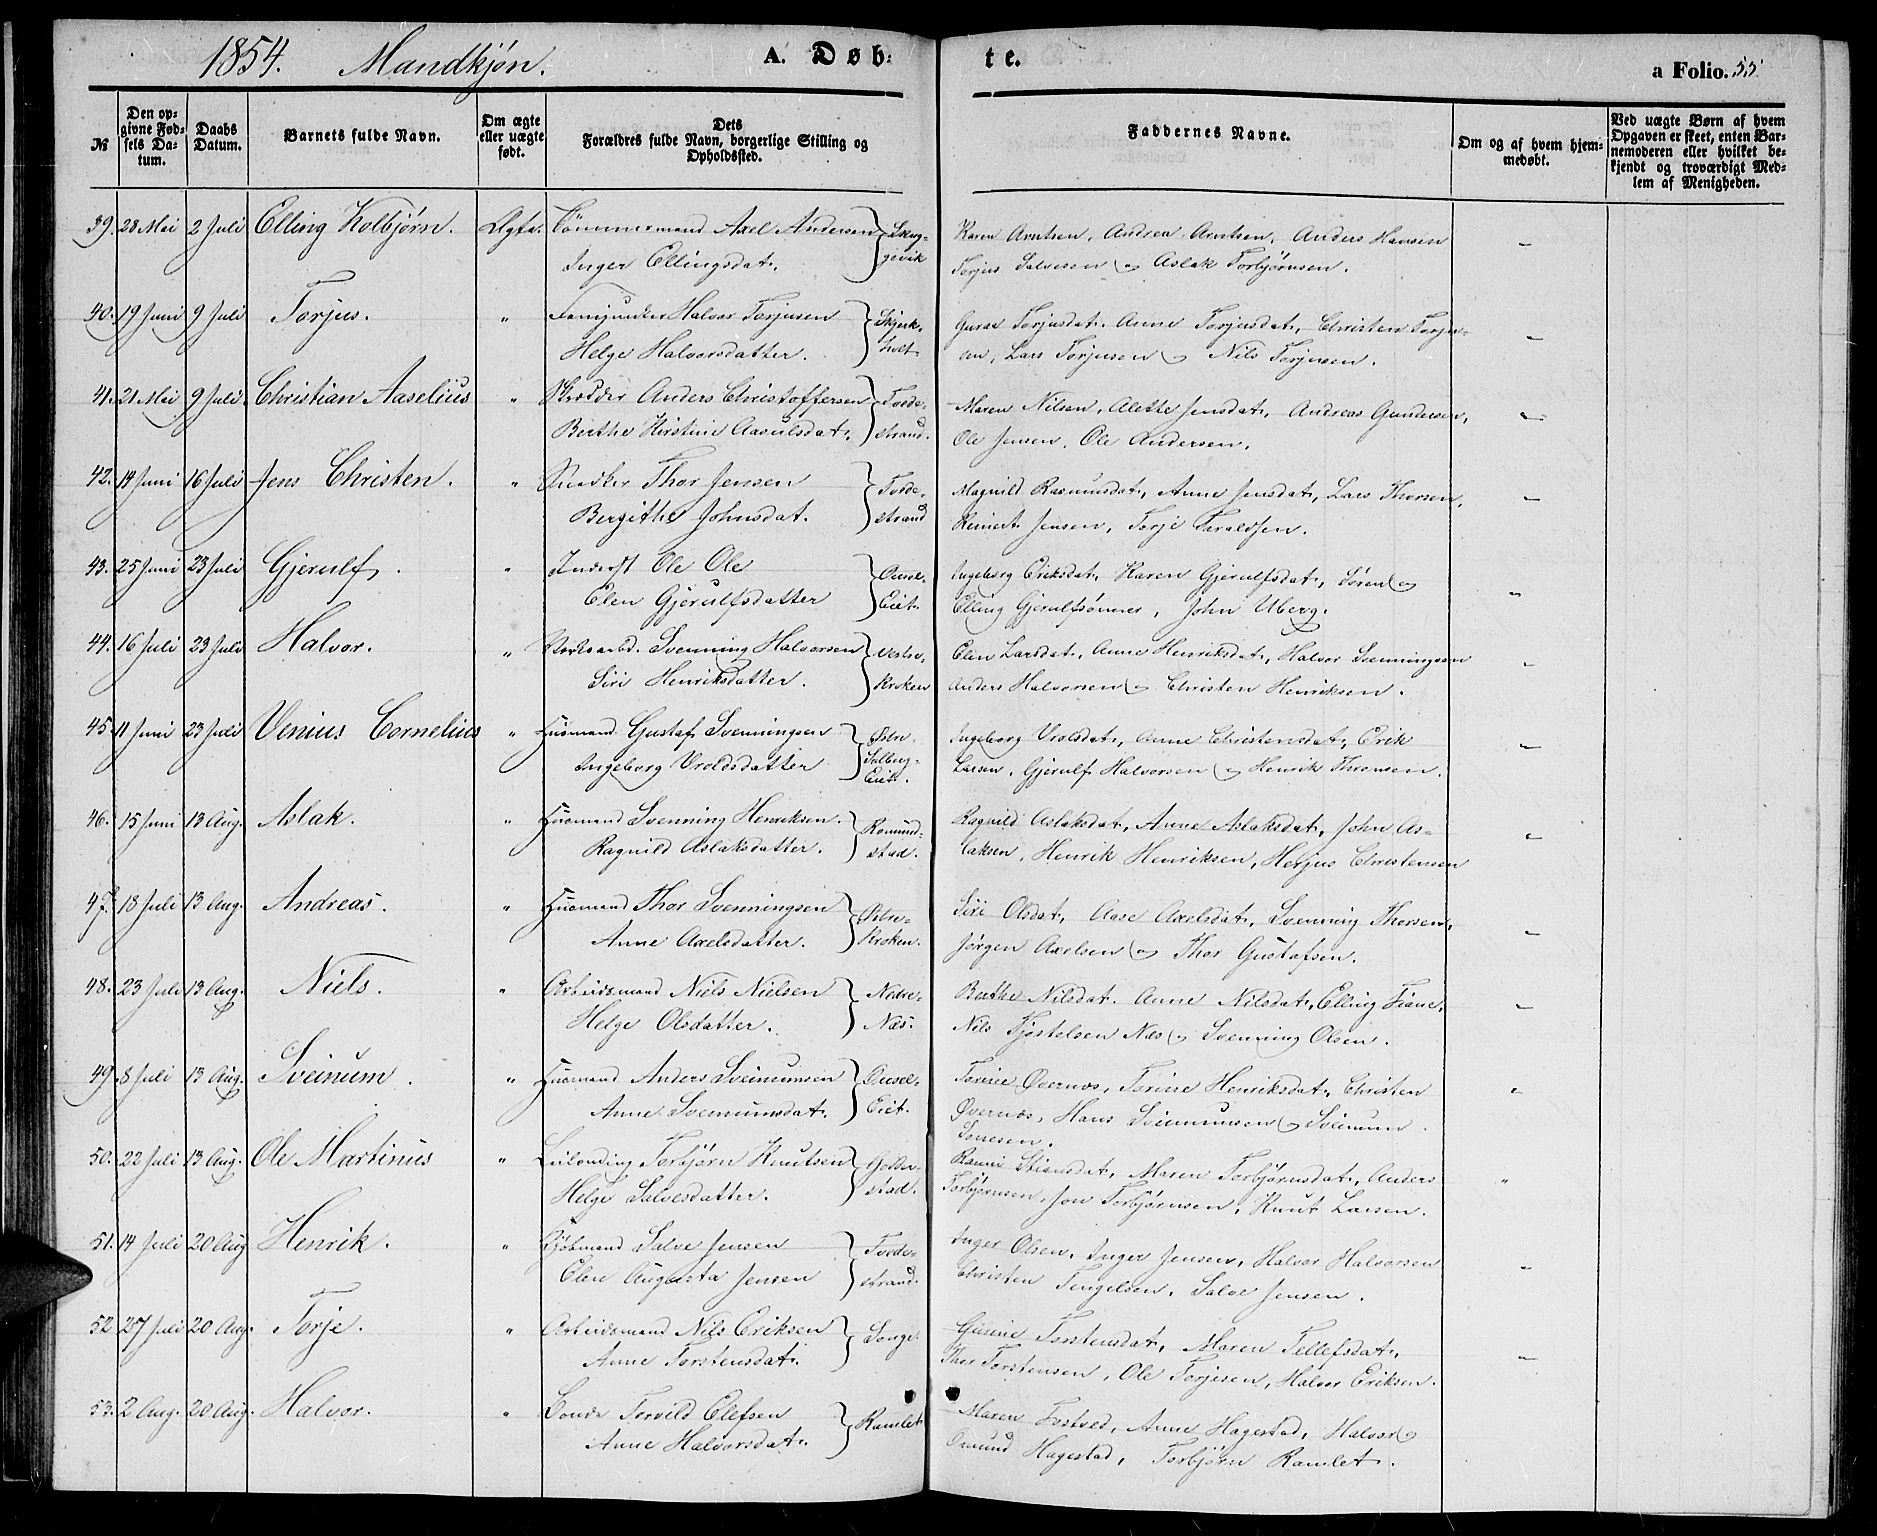 1854. Mandkjøn. A. Døb: te. a Folio. 55
№
Den op-
givne Fød-
sels Da-
tum.
Daabs
Datum.
Barnets fulde Navn.
Om ægte
eller uægte
født.
Dets
Forældres fulde Navn, borgerlige Stilling og
Opholdssted.
Faddernes Navne.
Om og af hvem hjem-
medøbt.
Ved uægte Børn af hvem
Opgaven er skeet, enten Bar-
nemoderen eller hvilket be-
kjendt og troværdigt Med-
lem af Menigheden.
39. 28 Mai 2 Juli Elling Kolbjørn. Ægte. Tømmermand Axel Andersen
Inger Ellingsdat.
Karen Arntsen, Andrea Arntsen, Anders Hansen
Torjus Salvesen og Aslak Torbjørnsen.
40. 19 Juni 9 Juli Torjus. " Halvor Torjusen
Helge Halvorsdatter.
Skjerk-
holt
Guras Torjusdat. Anne Torjusdat, Christen Torju-
sen, Lars Torjusen og Nils Torjusen.
41. 21 Mai 9 Juli Christian Aaselius " Skrædder Anders Christoffersen
Berthe Kirstine Aasulsdat.
Tvede-
strand.
Maren Nilsen, Alette Jensdat, Andreas Gundersen,
Ole Jensen, Ole Andersen.
42. 14 Juni 16 Juli Jens Christen. " Snedker Thor Jensen
Bergithe Johnsdat.
Tvede-
strand
Magnild Rasmusdat, Anne Jensdat, Lars Thorsen,
Reinert Jensen, Torje Taraldsen.
43. 25 Juni 23 Juli Gjerulf. " Inderst Ole Ole
Elen Gjerulfsdatter
Eiet.
Ingeborg Eriksdat, Karen Gjerulfsdat, Søren og
Elling Gjerulfsønner, John Uberg.
44. 16 Juli 23 Juli Halvor. " Svenning Halvorsen
Siri Henriksdatter.
Vestre
Kroken
Elen Larsdat, Anne Henriksdat, Halvor Svenningsen
Anders Halvorsen og Christen Henriksen.
45. 11 Juni 23 Juli Venius Cornelius " Husmand Gustaf Svenningsen
Ingeborg Vroldsdatter
Østre
Eiet.
Ingeborg Vrolsdat, Anne Christensdat, Erik
Larsen, Gjerulf Halvorsen og Henrik Thronsen.
46. 15 Juni 13 Aug. Aslak. " Husmand Svenning Henriksen.
Ragnild Aslaksdatter.
Romund-
stad.
Ragnild Aslaksdat, Anne Aslaksdat, John As-
laksen, Henrik Henriksen, Herjus Christensen
47. 18 Juli 13 Aug. Andreas. " Husmand Thor Svenningsen
Anne Axelsdatter.
Østre-
Kroken.
Siri Olsdat, Aase Axelsdat, Svenning Thorsen,
Jørgen Axelsen og Thor Gustafsen.
48. 23 Juli 13 Aug. Niels. " Arbeidsmand Niels Nielsen
Helge Olsdatter.
Nedre-
Næs.
Berthe Nilsdat. Anne Nilsdat, Elling Fiane,
Nils Kjøstelsen Næs og Svenning Olsen.
49. 8 Juli 13 Aug. Sveinum. " Husmand Anders Sveinumsen
Anne Sveinumsdat.
Eiet.
Torine Øvernæs, Torine Henriksdat, Christen
Øvernæs, Hans Sveinumsen og Sveinum
50. 22 Juli 13 Aug. Ole Martinus " Leilænding Torbjørn Knutsen
Helge Salvesdatter.
Goder-
stad.
Ranni Stiansdat, Maren Torbjørnsdat, Anders
Torbjørnsen, Jon Torbjørnsen, Knut Larsen.
51. 14 Juli 20 Aug Henrik. " Kjøbmand Salve Jensen
Elen Augusta Jensen
Tvede-
strand.
Inger Olsen, Inger Jensen, Halvor Halvorsen
Christen Tengelsen, Salve Jensen.
52 27 Juli 20 Aug. Torje. " Arbeidsmand Nils Eriksen
Anne Torstensdat.
Songe
Gurine Torstensdat, Maren Tellefsdat,
Thor Torstensen, Ole Torjesen, Halvor Eriksen.
53. 2 Aug. 20 Aug. Halvor. " Bonde Torvild Olefsen
Anne Halvorsdat.
Ramlet
Maren Fostved, Anne Hagestad, Halvor og
Omund Hagestad, Torbjørn Ramlet.